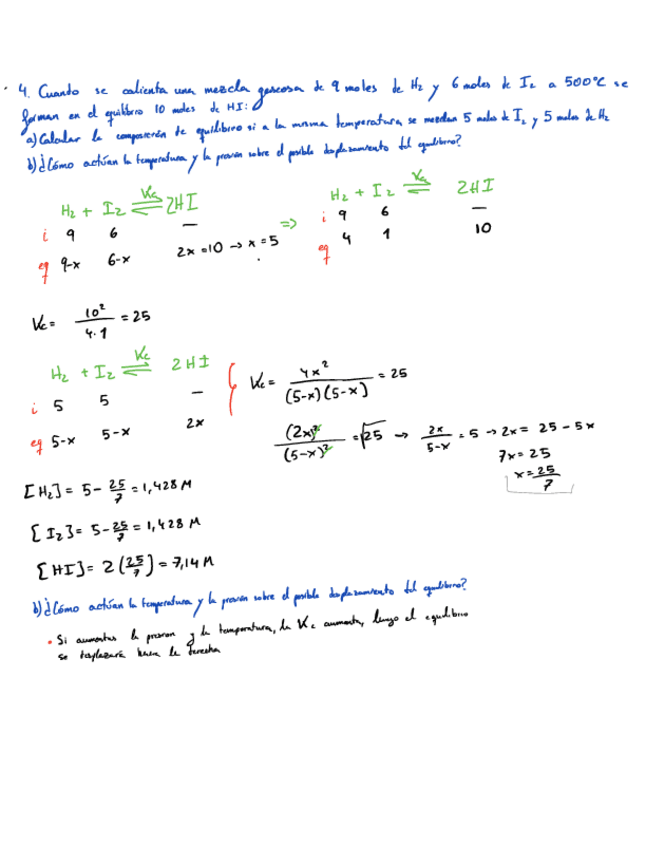 4. Cuando se calienta una mezcla gaseosa de 9 moles de H₂ y 6 moles de I₂ a 500°C se
forman en el equilibrio 10 moles de HI:
a) Calcular la composición de equilibrio si a la misma temperatura se mezclan 5 moles de I₂ y 5 moles de H₂
b) ¿Cómo actúan la temperatura y la presión sobre el posible desplazamiento del equilibrio?
H₂ + I₂ ⇌ 2HI Kc
i 9 6 —
eq 9-x 6-x 2x=10 → x=5
⇒ H₂ + I₂ ⇌ 2HI Kc
i 9 6 —
eq 4 1 10
Kc = 10²/4·1 = 25
H₂ + I₂ ⇌ 2HI Kc
i 5 5 —
eq 5-x 5-x 2x
Kc = 4x²/(5-x)(5-x) = 25
(2x)²/(5-x)² = √25 → 2x/5-x = 5 → 2x = 25 - 5x
7x = 25
x = 25/7
[H₂] = 5 - 25/7 = 1,428 M
[I₂] = 5 - 25/7 = 1,428 M
[HI] = 2(25/7) = 7,14 M
b) ¿Cómo actúan la temperatura y la presión sobre el posible desplazamiento del equilibrio?
• Si aumentas la presion y la temperatura, la Kc aumenta, luego el equilibrio
se desplazará hacia la derecha